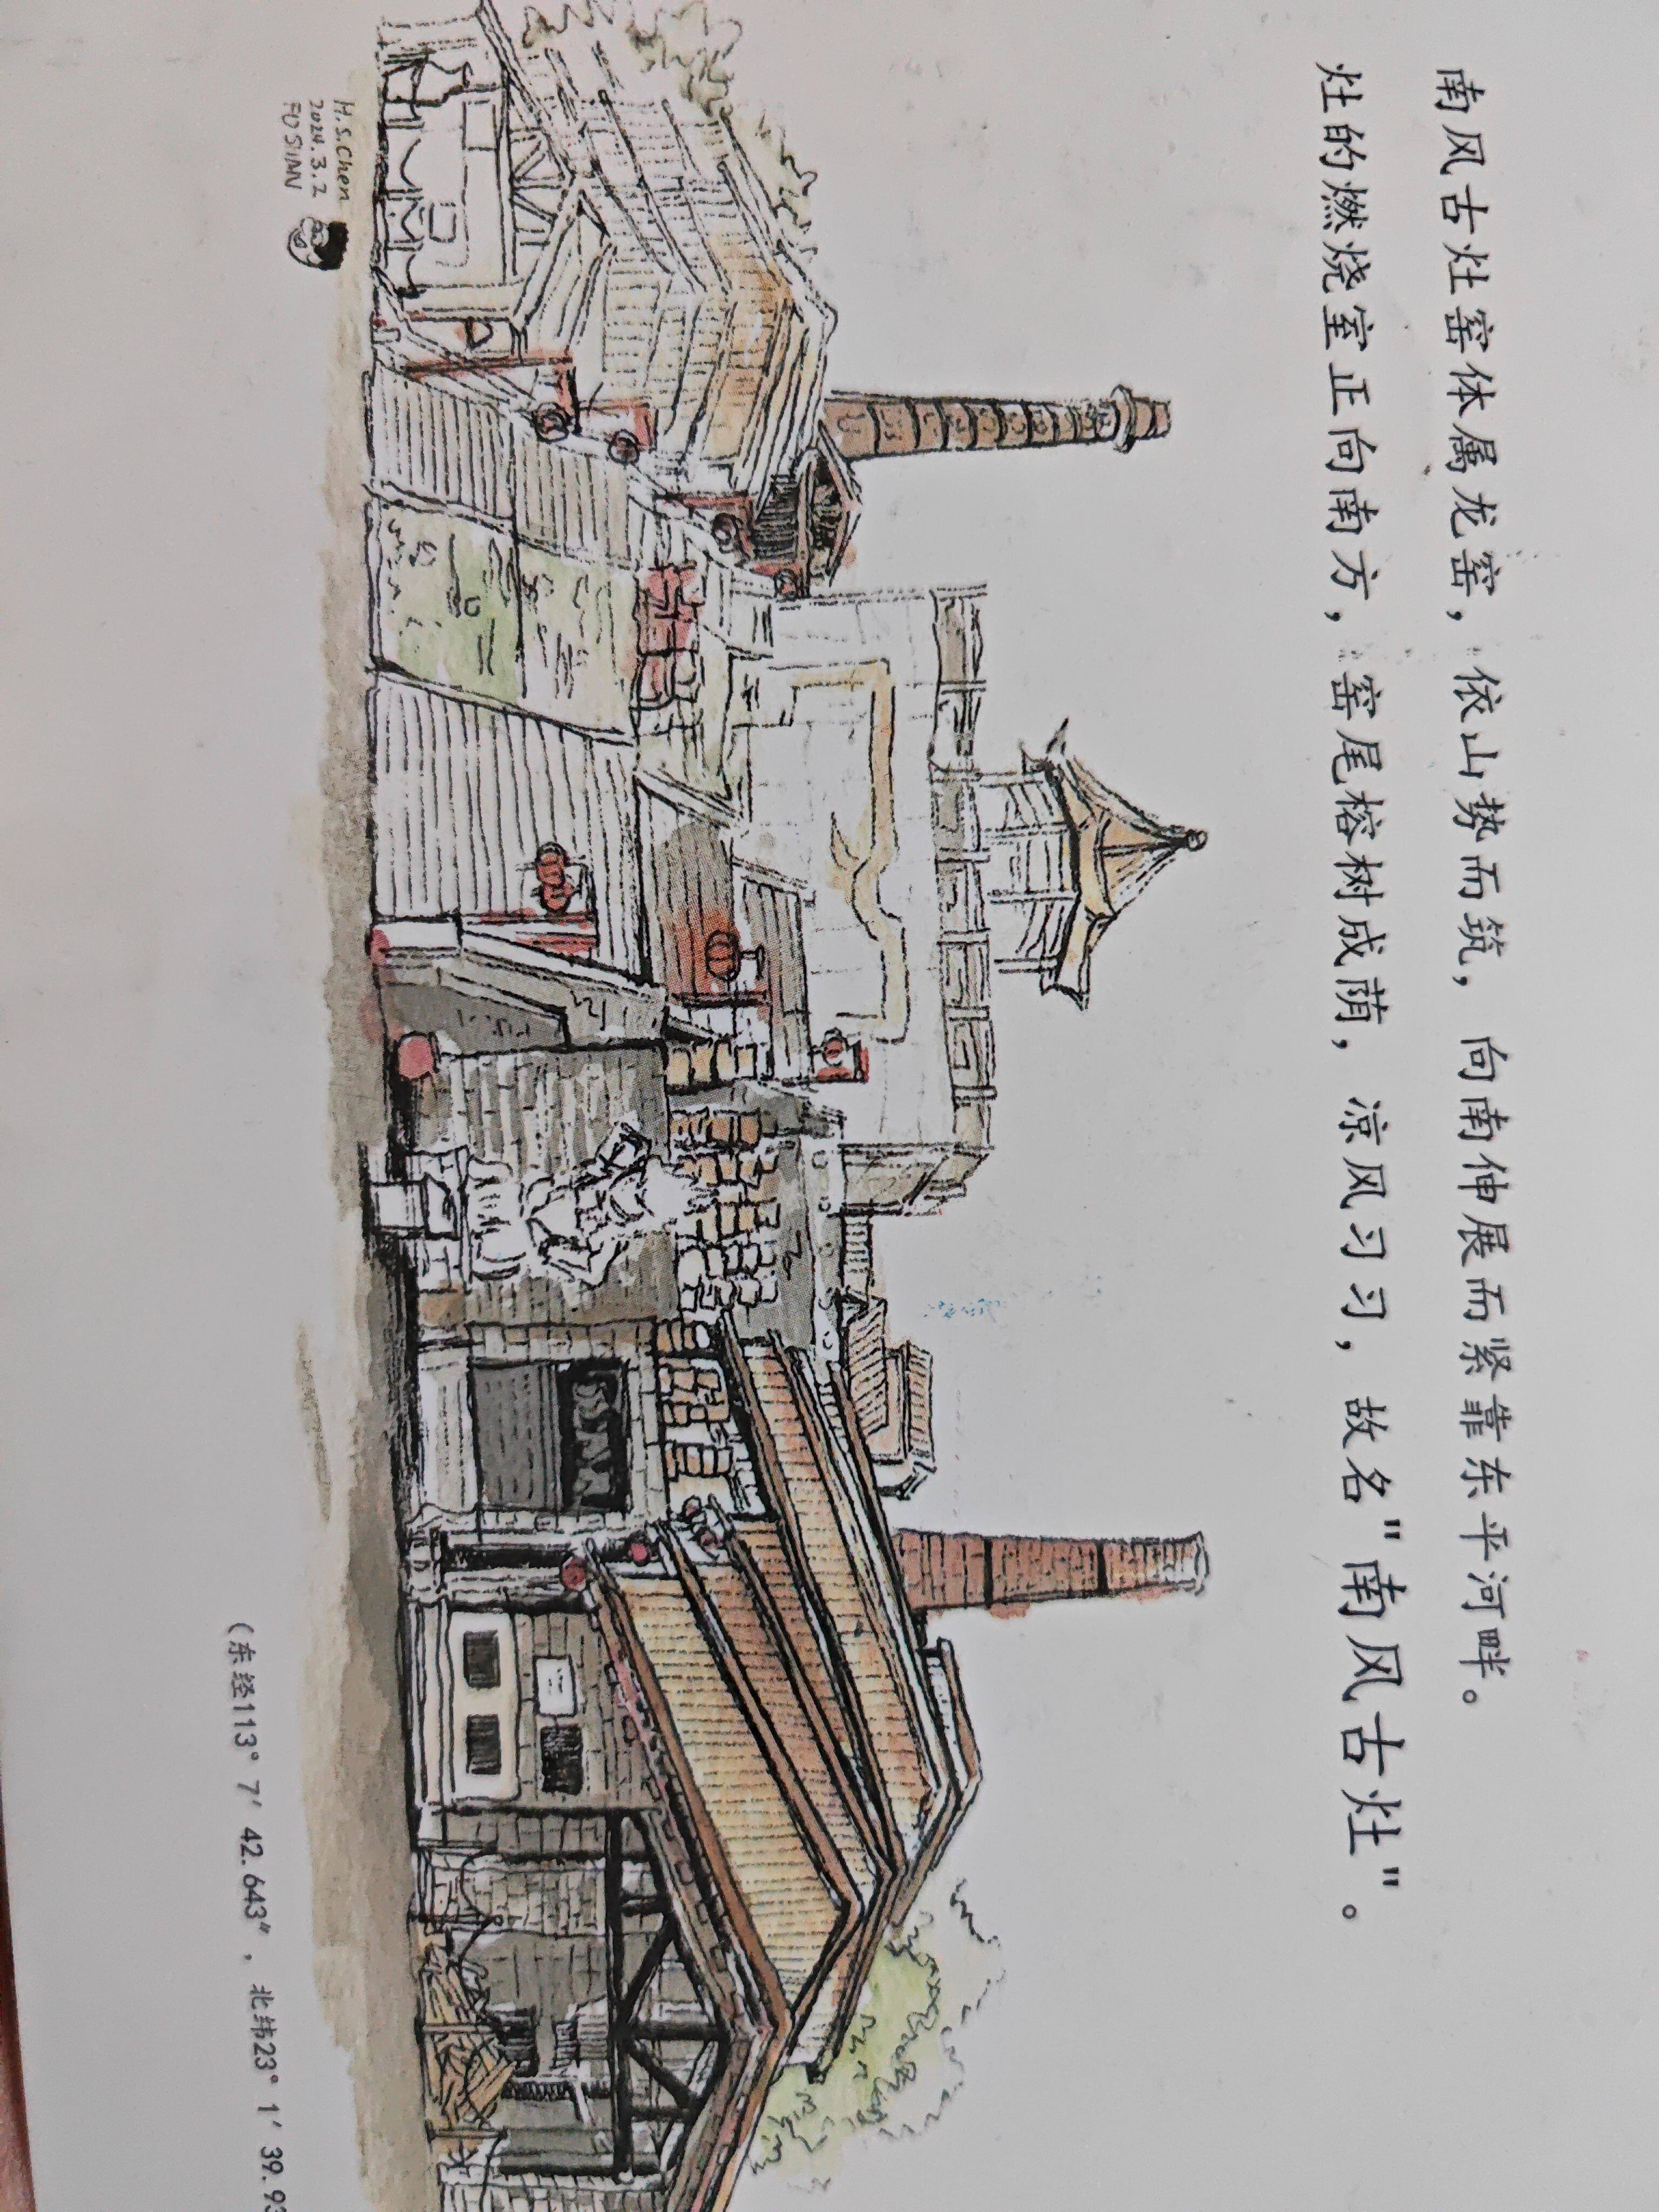 南风古灶窑体属龙窑，依山势而筑，向南伸展而紧靠东平河畔。
灶的燃烧室正向南方，窑尾榕树成荫，凉风习习，故名"南风古灶"。
H.S.Chen
2024.3.2
FOSHAN
（东经113°7′42.643″，北纬23°1′39.93